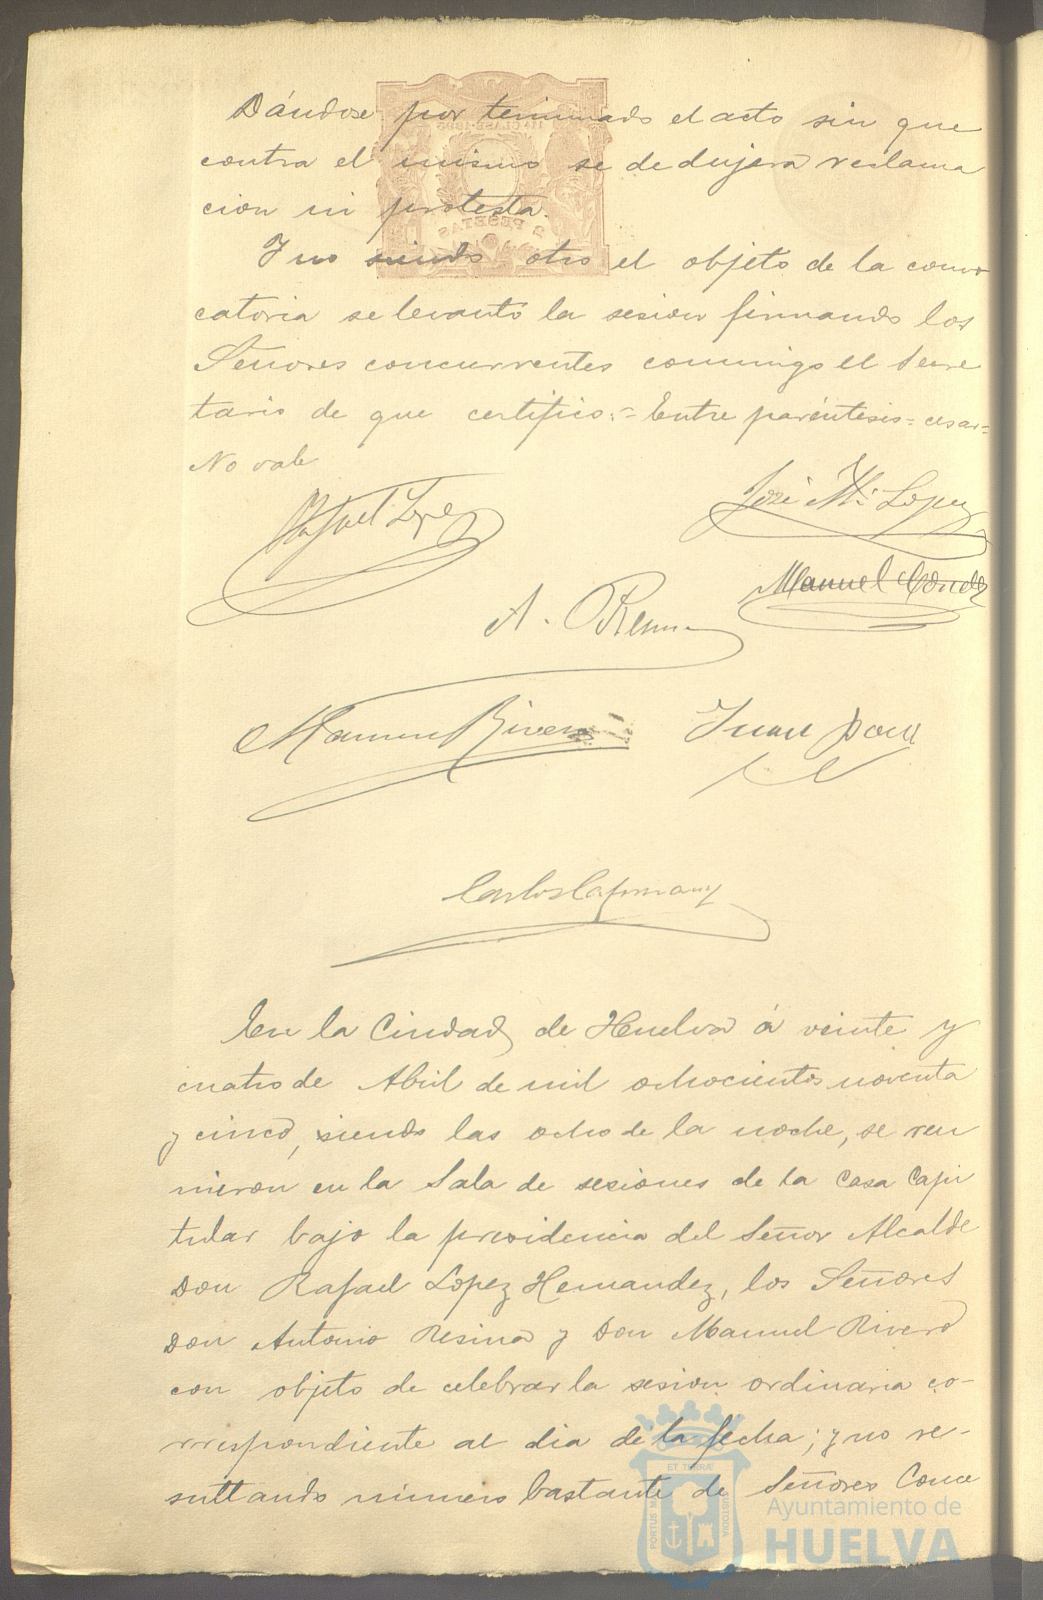 Dándose por terminado el acto sin que
contra el mismo se dedujera reclama
cion ni protesta.
Y no siendo otro el objeto de la convo
catoria se levantó la sesion firmando los
Señores concurrentes conmigo el Secre
tario de que certifico.= Entre paréntesis= cesar=
No vale
Rafael Lopez
José Mª Lopez
Manuel Conde
A. Resina
Manuel Rivero
Juan
Carlos Capmany
En la Ciudad de Huelva á veinte y
cuatro de Abril de mil ochocientos noventa
y cinco, siendo las ocho de la noche, se reu
nieron en la Sala de sesiones de la Casa Capi
tular bajo la presidencia del Señor Alcalde
Don Rafael Lopez Hernandez, los Señores
Don Antonio Resina y Don Manuel Rivero
con objeto de celebrar la sesion ordinaria co-
rrespondiente al dia de la fecha; y no re-
sultando número bastante de Señores Conce
11ª CLASE
2 PESETAS
PORTUS MARIS ET TERRÆ CUSTODIA
Ayuntamiento de
HUELVA